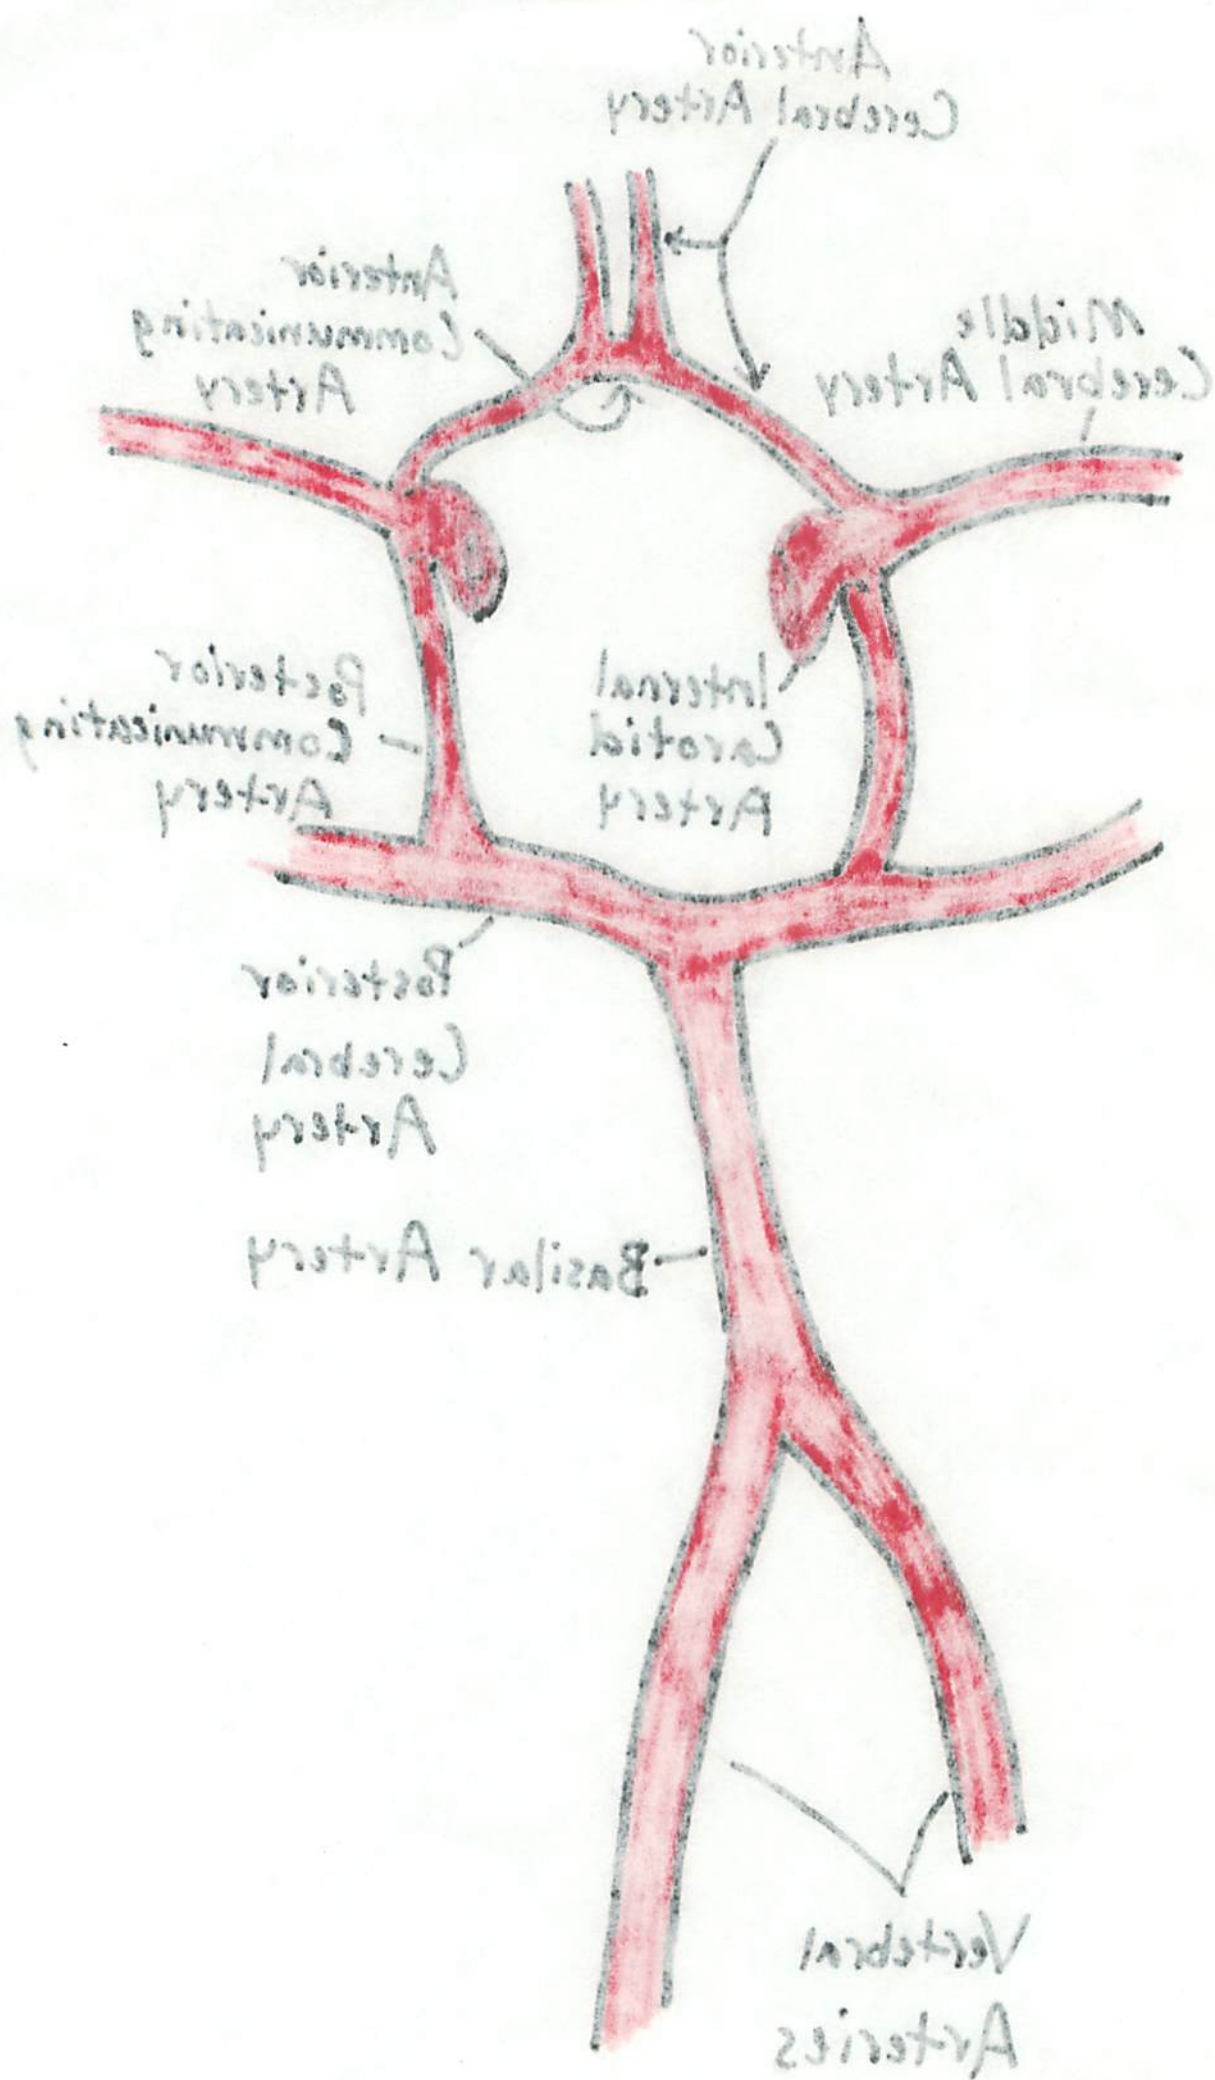 Anterior
Cerebral Artery
Anterior
Communicating
Artery
Middle
Cerebral Artery
Posterior
Communicating
Artery
Internal
Carotid
Artery
Posterior
Cerebral
Artery
Basilar Artery
Vertebral
Arteries